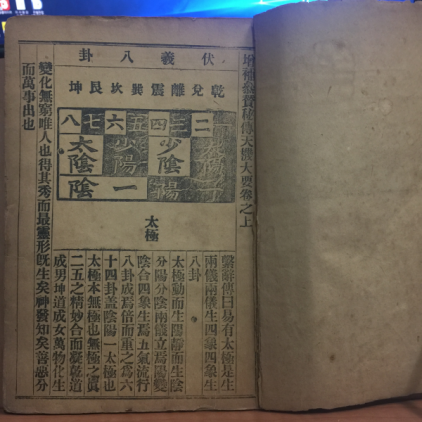 增補參贊秘傳天機大要卷之上
伏羲八卦
乾兌離震巽坎艮坤
二三四五六七八
少陰少陽太陰
陽一陰
太極
繫辭傳曰易有太極是生
兩儀兩儀生四象四象生
八卦
太極動而生陽靜而生陰
分陽分陰兩儀立焉陽變
陰合四象生焉五氣流行
八卦成焉倍而重之爲六
十四卦蓋陰陽一太極也
太極本無極也無極之眞
二五之精妙合而凝乾道
成男坤道成女萬物化生
變化無窮唯人也得其秀而最靈形旣生矣神發知矣善惡分
而萬事出也